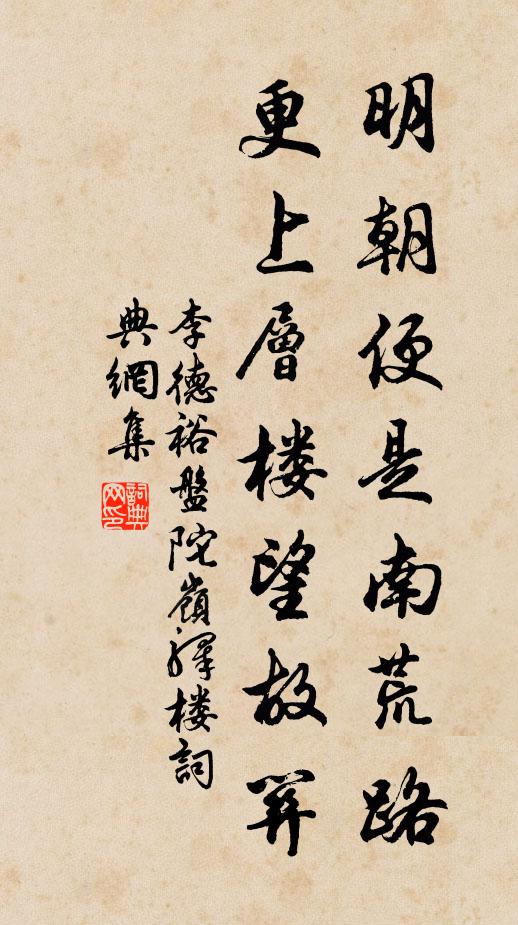 明朝便是南荒路
更上層楼望故關
李德裕盤陀嶺驛楼詞
典網集
詞典
网印